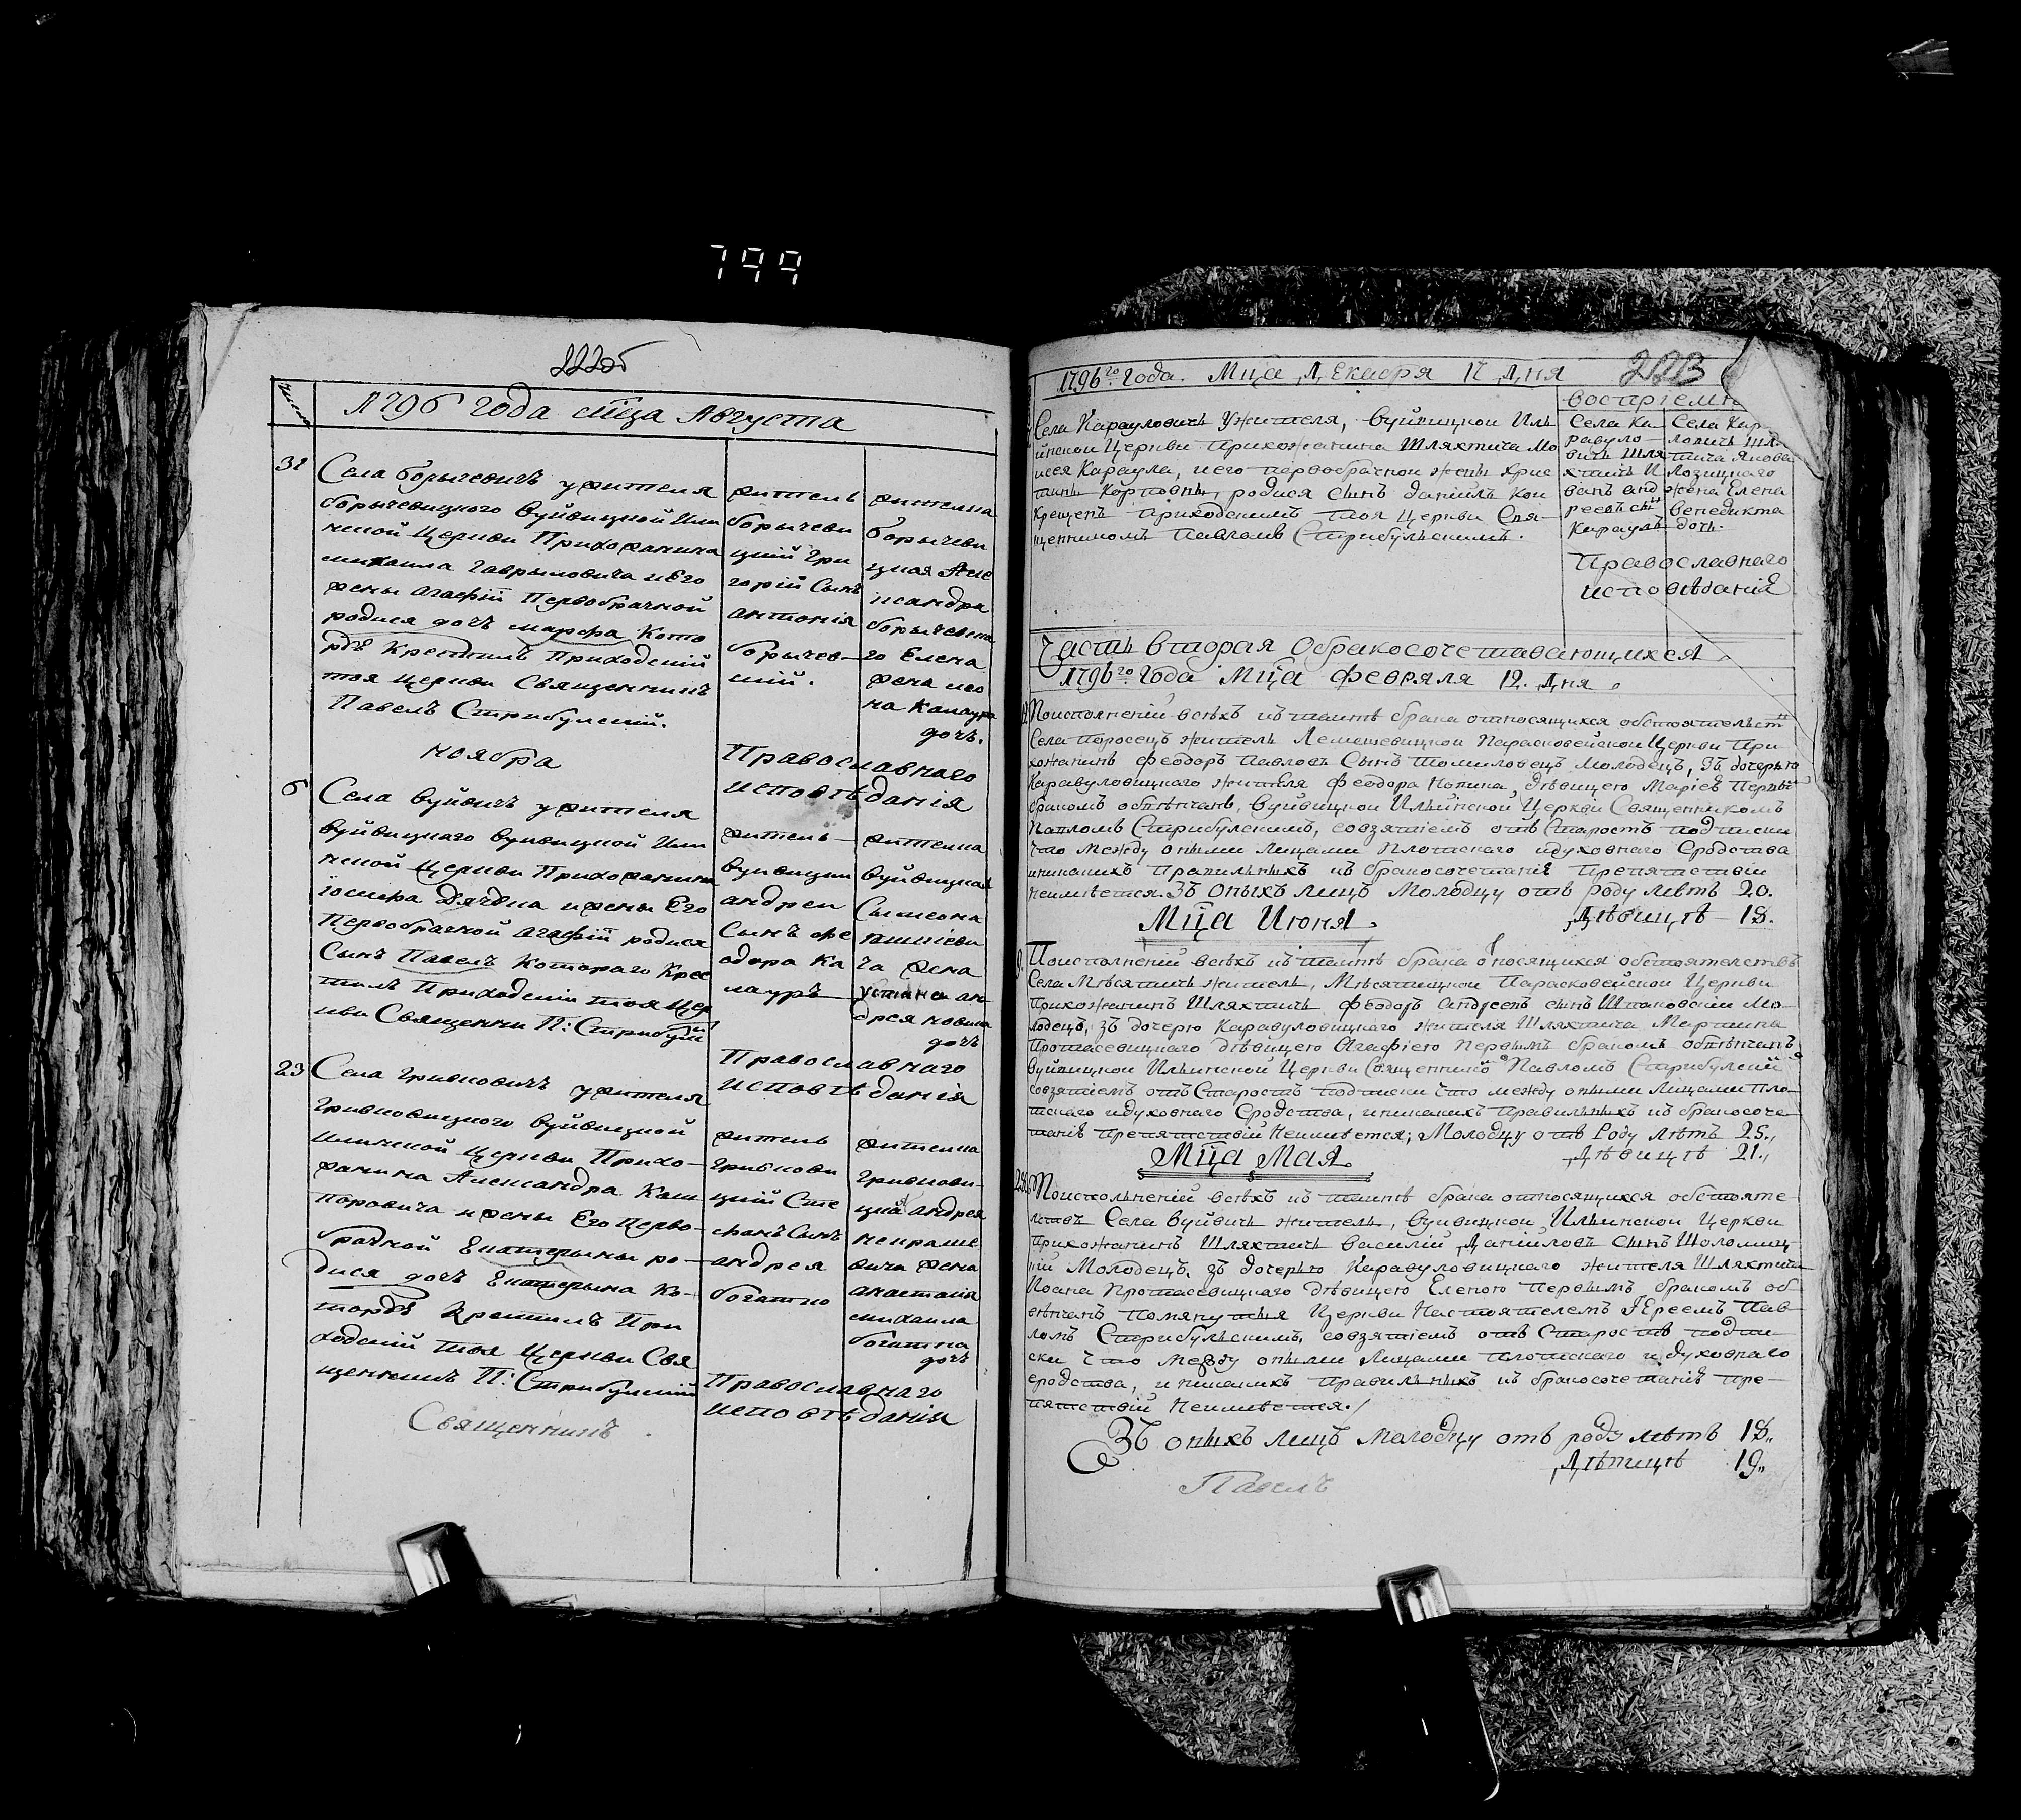 799
222об
Число
1796 года мца Августа
31
Села борычевичъ ужителя
борычевицкого вуйвицкой Или
нской Церкви Прихожанина
михаила гавриловича и его
жены агафiй Первобрачной
родися дочъ марфа Кото
рдѣ Крестилъ Приходскiй
тоя Церкви Священникъ
Павелъ Стрибулскiй.
житель
борычеви
цкiй гри
горiй Сынъ
антонiя
борычев-
скiй.
жителка
борычеви
цкая Але
ксандра
борычевска
го Елена
жена ио
на Калаура
дочъ.
Православного
исповѣданiя
ноября
6
Села вуйвичъ ужителя
вуйвицкаго вуйвицкой Или
нской Церкви Прихожанина
iосифа и жены Его
Первобрачной агафiй родися
Сынъ Павелъ Котораго Крес
тилъ Приходскiй тоя Цер
кви Священни П: Стрибул
житель
вуйвицки
андреи
Сынъ фе
одора Ка
лауръ
жителка
вуйвицкая
Сымеона
ча жена
устина ан
дрея
дочъ
Православнаго
исповѣданiя
23
Села гривковичъ ужителя
гривковицкого вуйвицкой
илинской Церкви Прихо-
жанина Александра Каш
паровича и жены Его Перво-
брачной Екатерыны ро-
дися дочъ Екатерына Ко-
тордѣ Крестилъ При
ходскiй тоя Церкви Свя
щенникъ П: Стрибулскiй
житель
гривкови
цкiй Сте
фанъ Сынъ
андрея
богатко
жителка
гривкови-
цка андрея
некраше
вича жена
анастасiя
михаила
богатка
дочъ
Православнаго
исповѣданiя
Священникъ
1796го Года. Мца Декабря 17 Дня
223
воспрiемн
Села Карауловичъ Ужителя, вуйвицкои Иль
инскои Церкви прихожанина Шляхтича Мо
исея Караула, иего первобрачнои жены Хрис
тины Карповны, родися сынъ данiилъ кои
крещенъ приходскимъ тоя Церкви Свя-
щенникомъ Павломъ Стрибульскимъ.
Села Ка
равуло-
вичъ Шля
хтичъ И
ванъ анд
реевъ сы
Караулъ
Села Кар
ловичъ Шл
тича Якова
Лозицкаго
жена Елена
Венедикта
дочь.
Православнаго
исповѣданiя
Часть вторая Обракосочетавающихся
1796го Года Мца Февраля 12. Дня.
Поисполненiй всѣхъ къ таинѣ брака относящихся обстоятельст
Села Паросецъ житель Лемешевицкои Парасковейскои Церкви При
хожанинъ Феодоръ Павловъ Сынъ Томиловецъ Молодецъ, Зъ дочерью
Каравуловицкаго жителя Феодора Копика, дѣвицею Марiеѣ Первы
бракомъ обвѣнчанъ, вуйвицкои Ильинской Церкви Священникомъ
Павломъ Стрибулскимъ, совзятiемъ отъ Старостъ подписки
что между оными Лицами плотскаго идуховнаго Сродства
иникакихъ правильныхъ къ бракосочетанiѣ препятствiи
неимѣется. Зъ оныхъ лицъ Молодцу отъ Роду лѣтъ 20.
Дѣвицѣ 18.
Мца Июня.
9.
Поисполненiй всѣхъ къ таинѣ брака относящихся обстоятелствъ
Села Мѣсятичъ житель, Мѣсятицкои Парасковейскои Церкви
прихожанинъ Шляхтичъ Феодоръ Андреевъ сынъ Шпаковскiй Мо-
лодецъ, зъ дочерю Каравуловицкаго жителя Шляхтича Мартина
Протасевицкаго дѣвицею Агафiею первымъ бракомъ обвѣнчанъ
вуйвицкои Ильинской Церкви Священнико Павломъ Стрибулски
совзятiемъ отъ Старостъ подписки что между оными Лицами Пло-
тскаго идуховнаго Сродства, иникакихъ правильныхъ къ бракосоче-
танiѣ препятствiй Неимѣется; Молодцу отъ Роду лѣтъ 25.,
Дѣвицѣ 21.,
Мца Мая.
Поисполненiй всѣхъ къ таинѣ брака относящихся обстояте
лствъ Села вуйвичъ житель, вуйвицкой Ильинской Церкви
прихожанинъ Шляхтичъ василiи Данiиловъ сынъ Шоломиц
кiй Молодецъ, зъ дочерью Каравуловицкаго жителя Шляхтича
Иоана Протасевицкаго дѣвицею Еленою первымъ бракомъ об
вѣнчанъ Помянутыя Церкви Настоятелемъ Iереемъ Пав
ломъ Стрибульскимъ, совзятiемъ отъ Старостъ подпи
ски что между оными Лицами плотскаго идуховнаго
сродства, иникакихъ правильныхъ къ бракосочетанiѣ пре-
пятствiй неимѣется.
Зъ оныхъ лицъ молодцу отъ роду лѣтъ 18.,
Дѣвицѣ 19.,
Павелъ